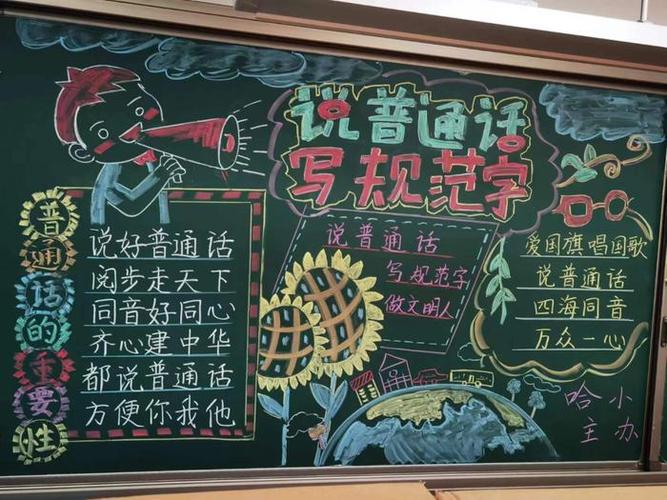 说普通话
写规范字
普通话的重要性
说好普通话
阅步走天下
同音好同心
齐心建中华
都说普通话
方便你我他
说普通话
写规范字
做文明人
爱国旗唱国歌
说普通话
四海同音
万众一心
哈小
主办